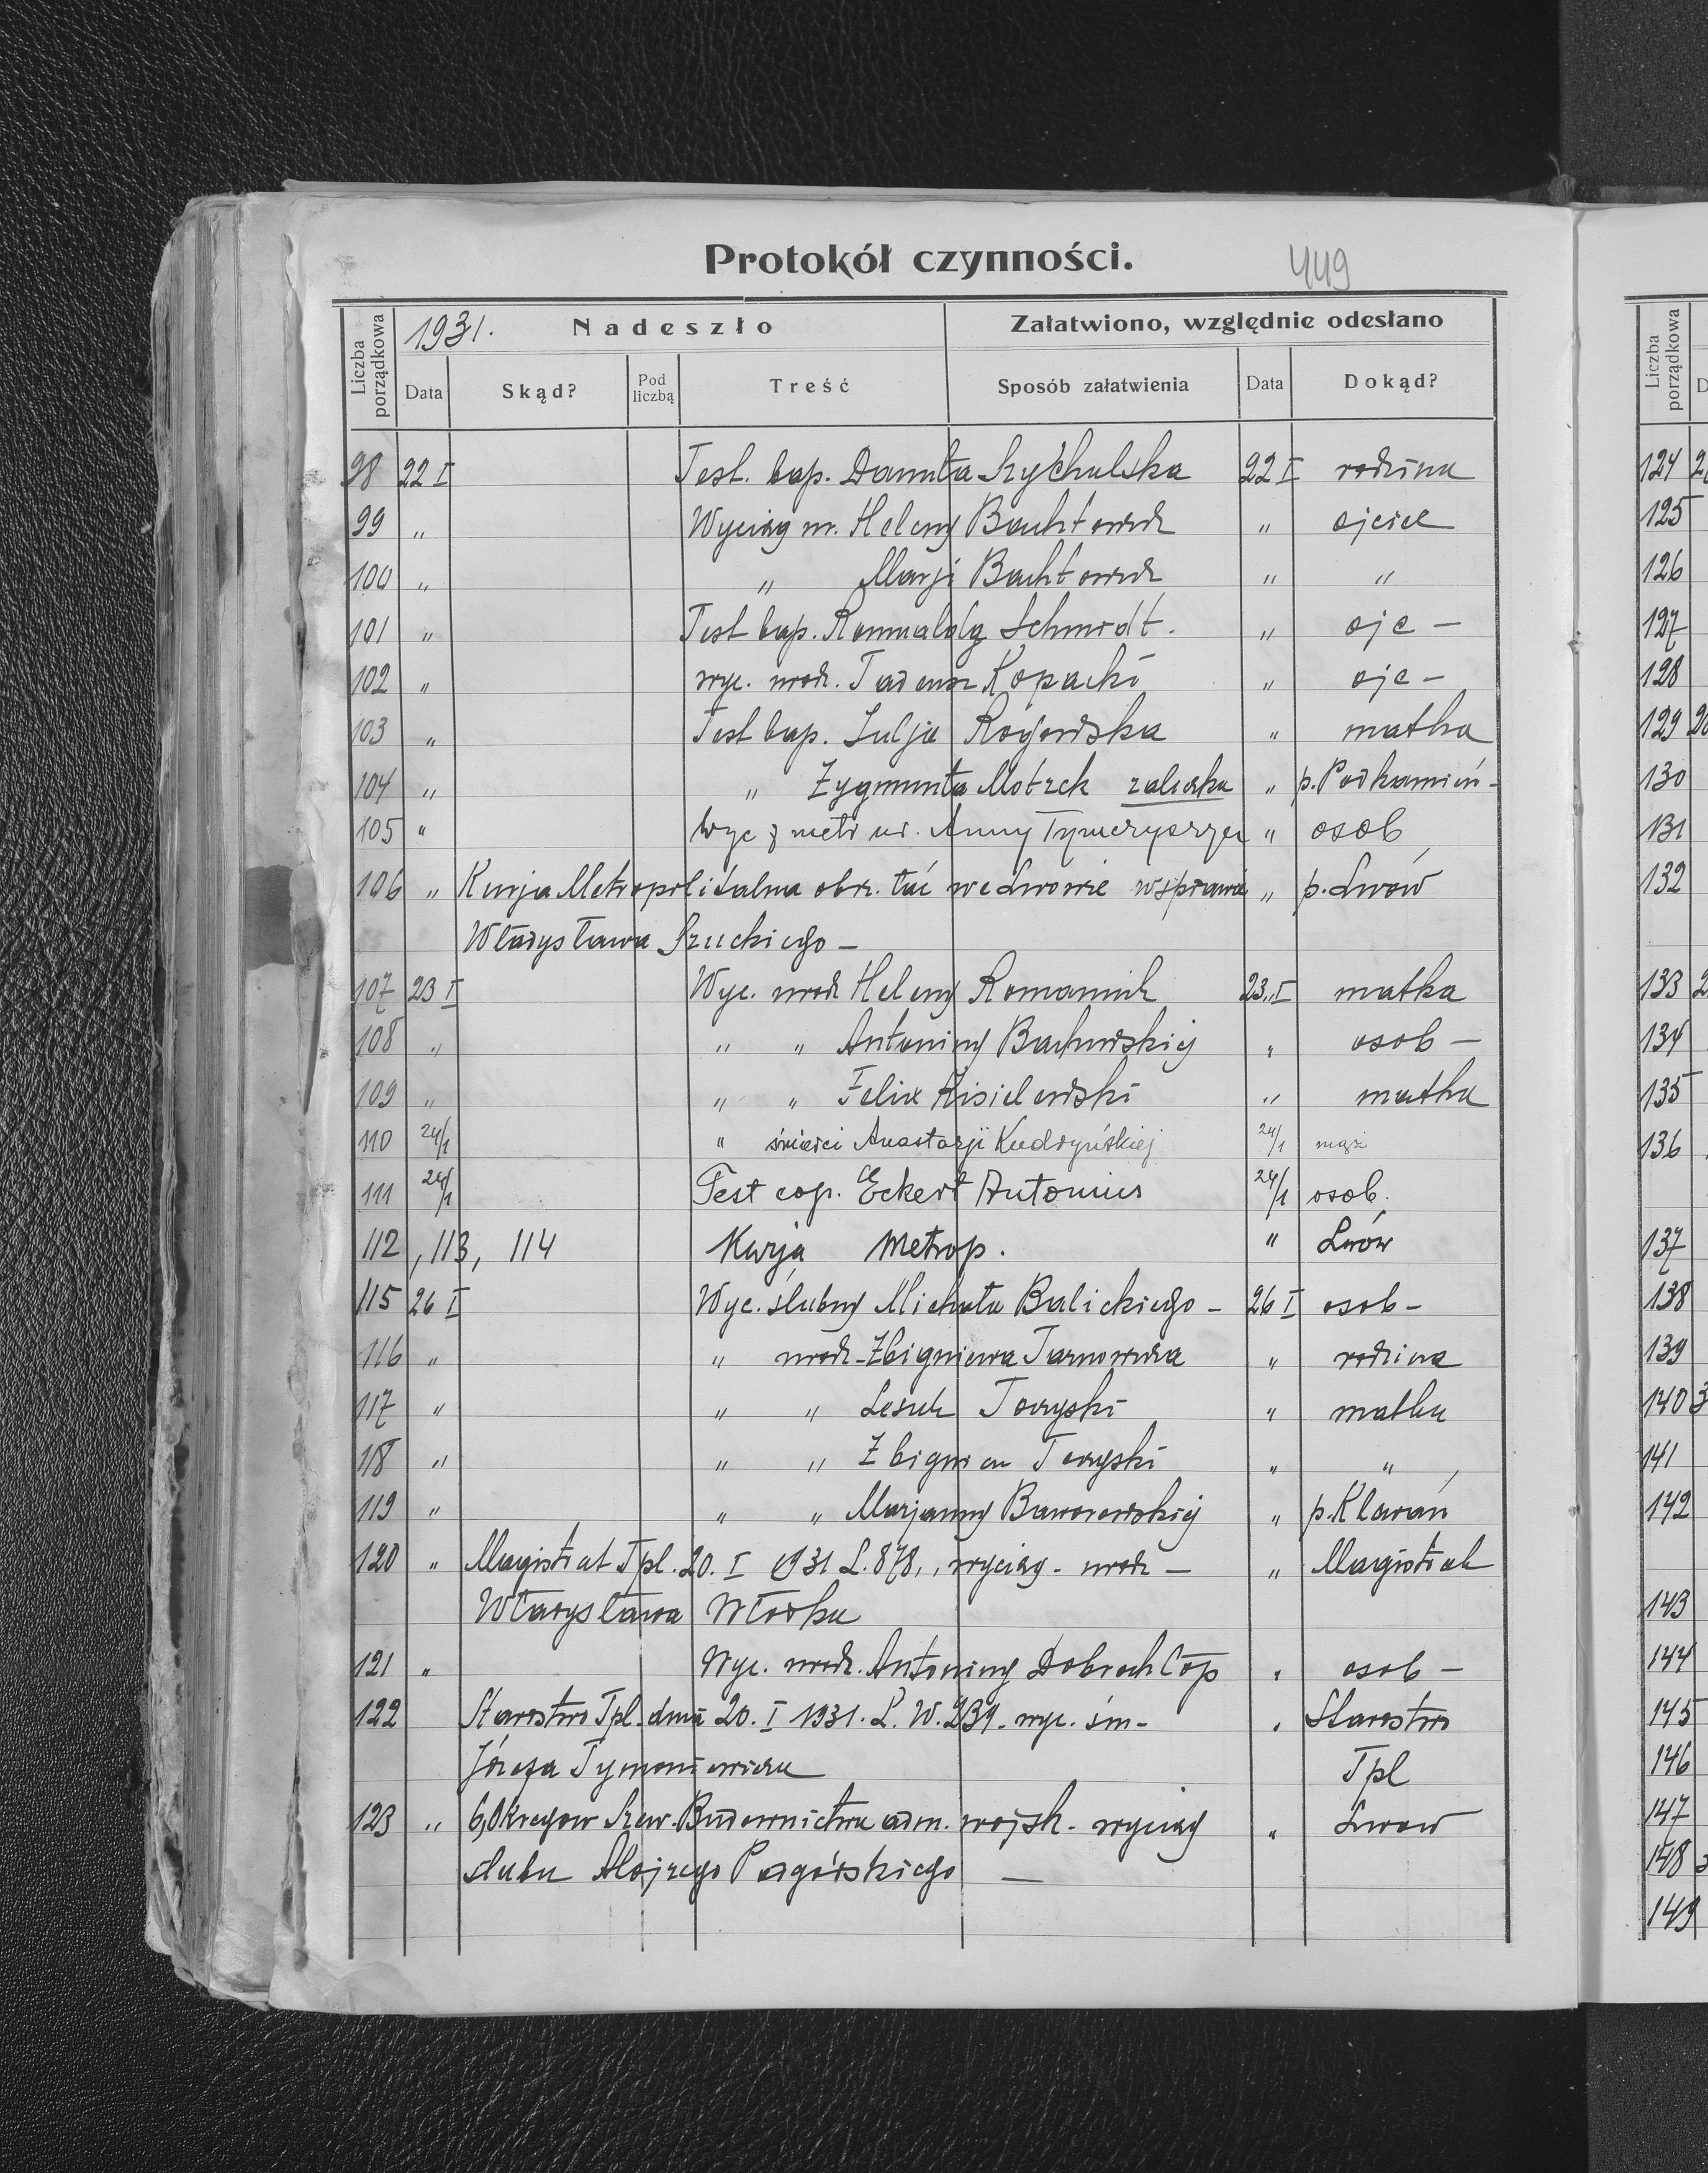 Protokół czynności. 449
1931. Nadeszło Załatwiono, względnie odesłano
Liczba porządkowa Data Skąd? Pod liczbą Treść Sposób załatwienia Data Dokąd?
98 22 I Test. bap. Danuta 22 I rodzina
99 " Wyciąg m. Heleny " ojciec
100 " " Marji " "
101 " Test bap. Romualda Schmidt. " ojc -
102 " wyc. urodz. Tadeusz Kopacki " ojc -
103 " Test bap. Julja Rogowska " matka
104 " " Zygmunta Motrek zaliczka " p. Podkamień -
105 " Wyc z metr ur. Anny " osob
106 " Kurja Metropolitalna obrz. łać we Lwowie w sprawie " p. Lwów
Władysława Szuckiego -
107 23 I Wyc. urodz Heleny Romaniuk 23 I matka
108 " " " Antoniny " osob -
109 " " " Felix Kisielewski " matka
110 24/1 " śmierci Anastazji Kudryńskiej 24/1 mąż
111 24/1 Test cop. Eckert Antonius 24/1 osob.
112, 113, 114 Kurja Metrop. " Lwów
115 26 I Wyc. ślubny Michała Balickiego - 26 I osob -
116 " " urodz - Zbigniewa " rodzina
117 " " " Leszek Toryski " matka
118 " " " Zbigniew Toryski " "
119 " " " Marjanny Baworowskiej " p.
120 " Magistrat Tpl. 20. I 1931 L. 878., wyciąg - urodz - " Magistrat
Władysława Włoska
121 " Wyc. urodz. Antoniny Dobrochłop " osob -
122 Starostwo Tpl. dnia 20. I 1931. L. W. 239 - wyc. śm - " Starostwo
Józefa Tymoniewicza Tpl
123 " 6, Okręgow Szew. Budownictwa adm. wojsk. wyciąg " Lwow
ślubu Alojzego Pogórskiego —
Liczba porządkowa
124
125
126
127
128
129
130
131
132
133
134
135
136
137
138
139
140
141
142
143
144
145
146
147
148
149